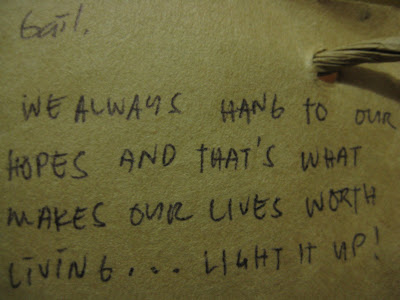 WE ALWAYS HANG TO OUR
HOPES AND THAT'S WHAT
MAKES OUR LIVES WORTH
LIVING... LIGHT IT UP!